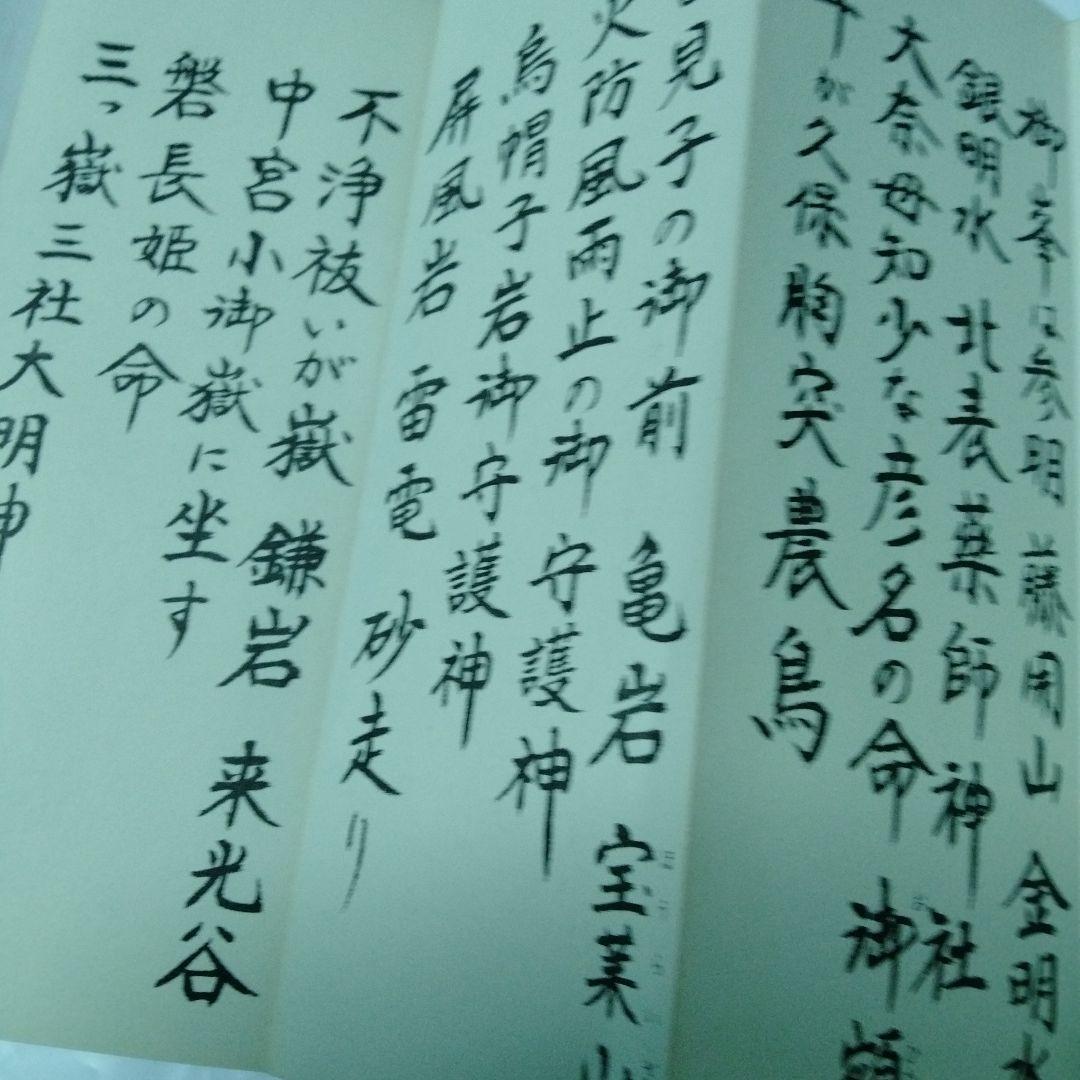 御峯は参明藤開山 金明水
銀明水 北表薬師神社
大奈母知少な彦名の命 御
が久保胸突農鳥
見子の御前 亀岩 宝莱山
火防風雨止の御守護神
烏帽子岩御守護神
屏風岩 雷電 砂走り
不浄祓いが嶽 鎌岩 来光谷
中宮小御嶽に坐す
磐長姫の命
三ッ嶽三社大明神